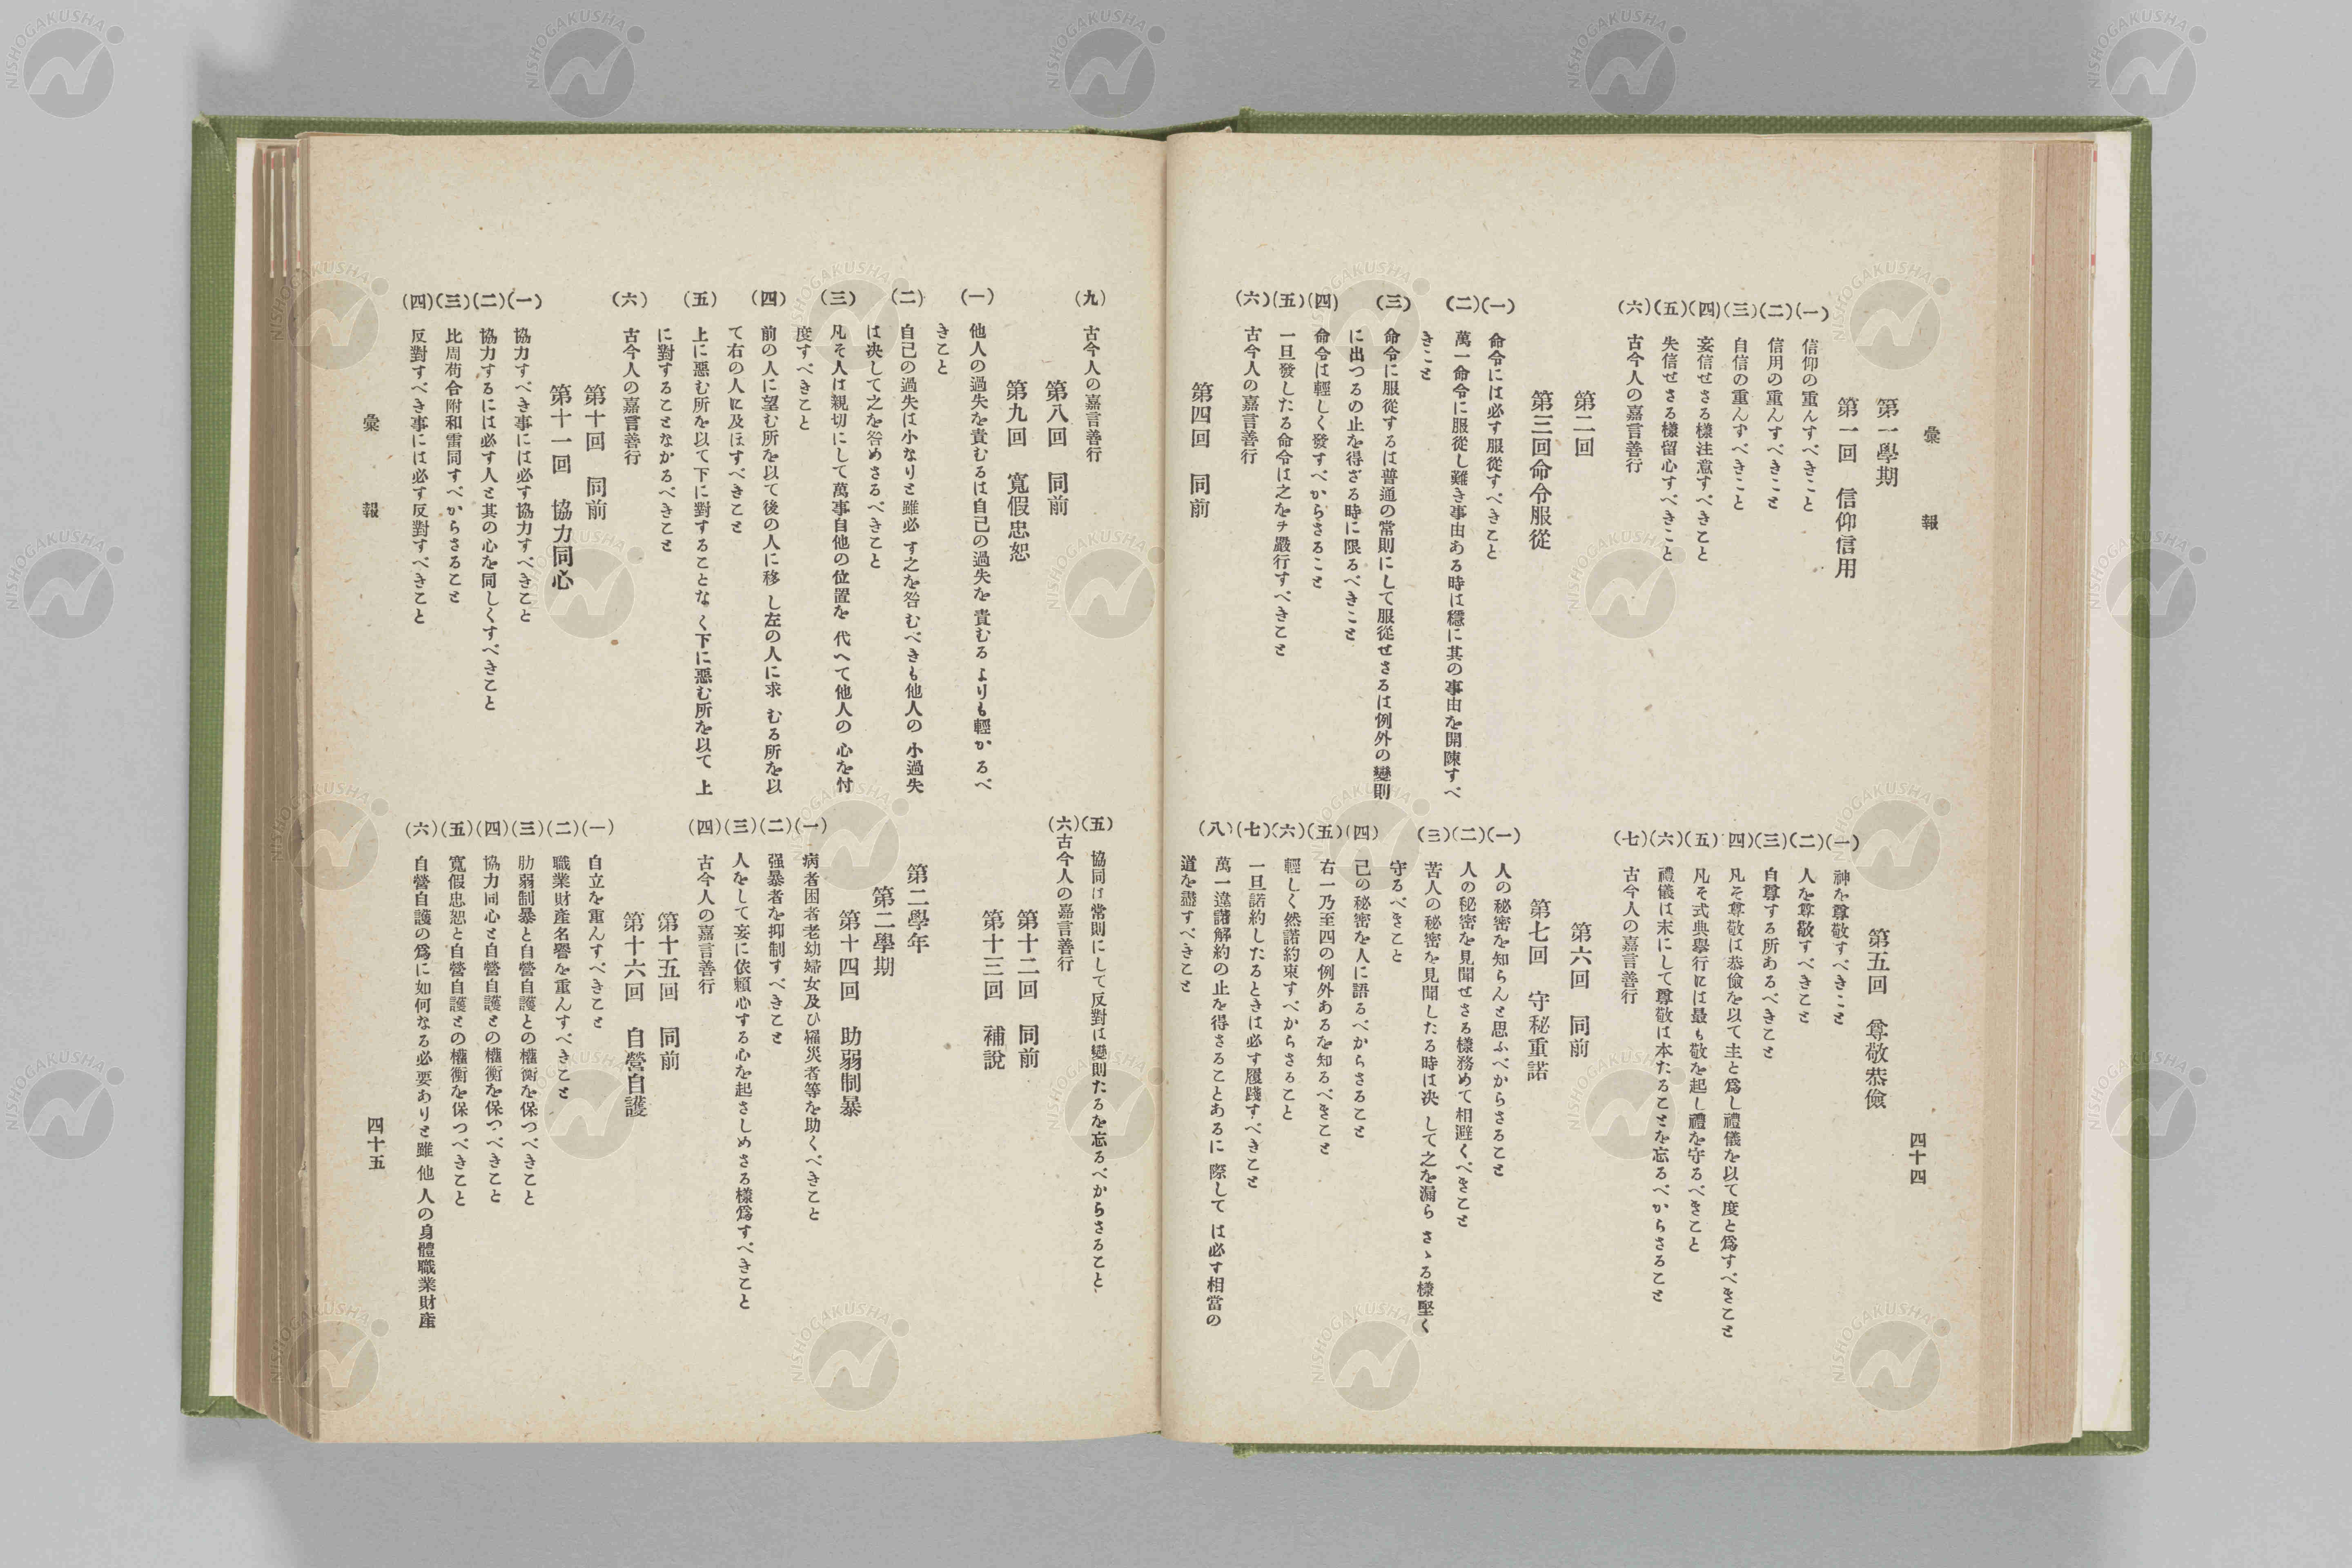 彙報
四十四
第一學期
第一回 信仰信用
(一) 信仰の重んすべきこと
(二) 信用の重んすべきこと
(三) 自信の重んすべきこと
(四) 妄信せさる樣注意すべきこと
(五) 失信せさる樣留心すべきこと
(六) 古今人の嘉言善行
第二回
第三回命令服從
(一) 命令には必す服從すべきこと
(二) 萬一命令に服從し難き事由ある時は穩に其の事由を開陳すべ
きこと
(三) 命令に服從するは普通の常則にして服從せさるは例外の變則
に出つるの止を得ざる時に限るべきこと
(四) 命令は輕しく發すべからさること
(五) 一旦發したる命令は之をチ嚴行すべきこと
(六) 古今人の嘉言善行
第四回 同前
第五回 尊敬恭儉
(一) 神を尊敬すべきこと
(二) 人を尊敬すべきこと
(三) 自尊する所あるべきこと
四) 凡そ尊敬は恭儉を以て主と爲し禮儀を以て度と爲すべきこと
(五) 凡そ式典擧行には最も敬を起し禮を守るべきこと
(六) 禮儀は末にして尊敬は本たることを忘るべからさること
(七) 古今人の嘉言善行
第六回 同前
第七回 守秘重諾
(一) 人の秘密を知らんと思ふべからさること
(二) 人の秘密を見聞せさる樣務めて相避くべきこと
(三) 苦人の秘密を見聞したる時は决して之を漏らさゝる樣堅く
守るべきこと
(四) 己の秘密を人に語るべからさること
(五) 右一乃至四の例外あるを知るべきこと
(六) 輕しく然諾約束すべからさること
(七) 一旦諾約したるときは必す履踐すべきこと
(八) 萬一違諾解約の止を得さることあるに際しては必す相當の
道を盡すべきこと
(九) 古今人の嘉言善行
第八回 同前
第九回 寬假忠恕
(一) 他人の過失を責むるは自己の過失を責むるよりも輕かるべ
きこと
(二) 自己の過失は小なりと雖必す之を咎むべきも他人の小過失
は决して之を咎めさるべきこと
(三) 凡そ人は親切にして萬事自他の位置を代へて他人の心を忖
度すべきこと
(四) 前の人に望む所を以て後の人に移し左の人に求むる所を以
て右の人に及ほすべきこと
(五) 上に惡む所を以て下に對することなく下に惡む所を以て上
に對することなかるべきこと
(六) 古今人の嘉言善行
第十回 同前
第十一回 協力同心
(一) 協力すべき事には必す協力すべきこと
(二) 協力するには必す人と其の心を同しくすべきこと
(三) 比周苟合附和雷同すべからさること
(四) 反對すべき事には必す反對すべきこと
(五) 協同は常則にして反對は變則たるを忘るべからさること
(六) 古今人の嘉言善行
第十二回 同前
第十三回 補說
第二學年
第二學期
第十四回 助弱制暴
(一) 病者困者老幼婦女及ひ罹災者等を助くべきこと
(二) 强暴者を抑制すべきこと
(三) 人をして妄に依賴心する心を起さしめさる樣爲すべきこと
(四) 古今人の嘉言善行
第十五回 同前
第十六回 自營自護
(一) 自立を重んすべきこと
(二) 職業財產名譽を重んすべきこと
(三) 助弱制暴と自營自護との權衡を保つべきこと
(四) 協力同心と自營自護との權衡を保つべきこと
(五) 寬假忠恕と自營自護との權衡を保つべきこと
(六) 自營自護の爲に如何なる必要ありと雖他人の身體職業財產
彙報
四十五
NISHOGAKUSHA